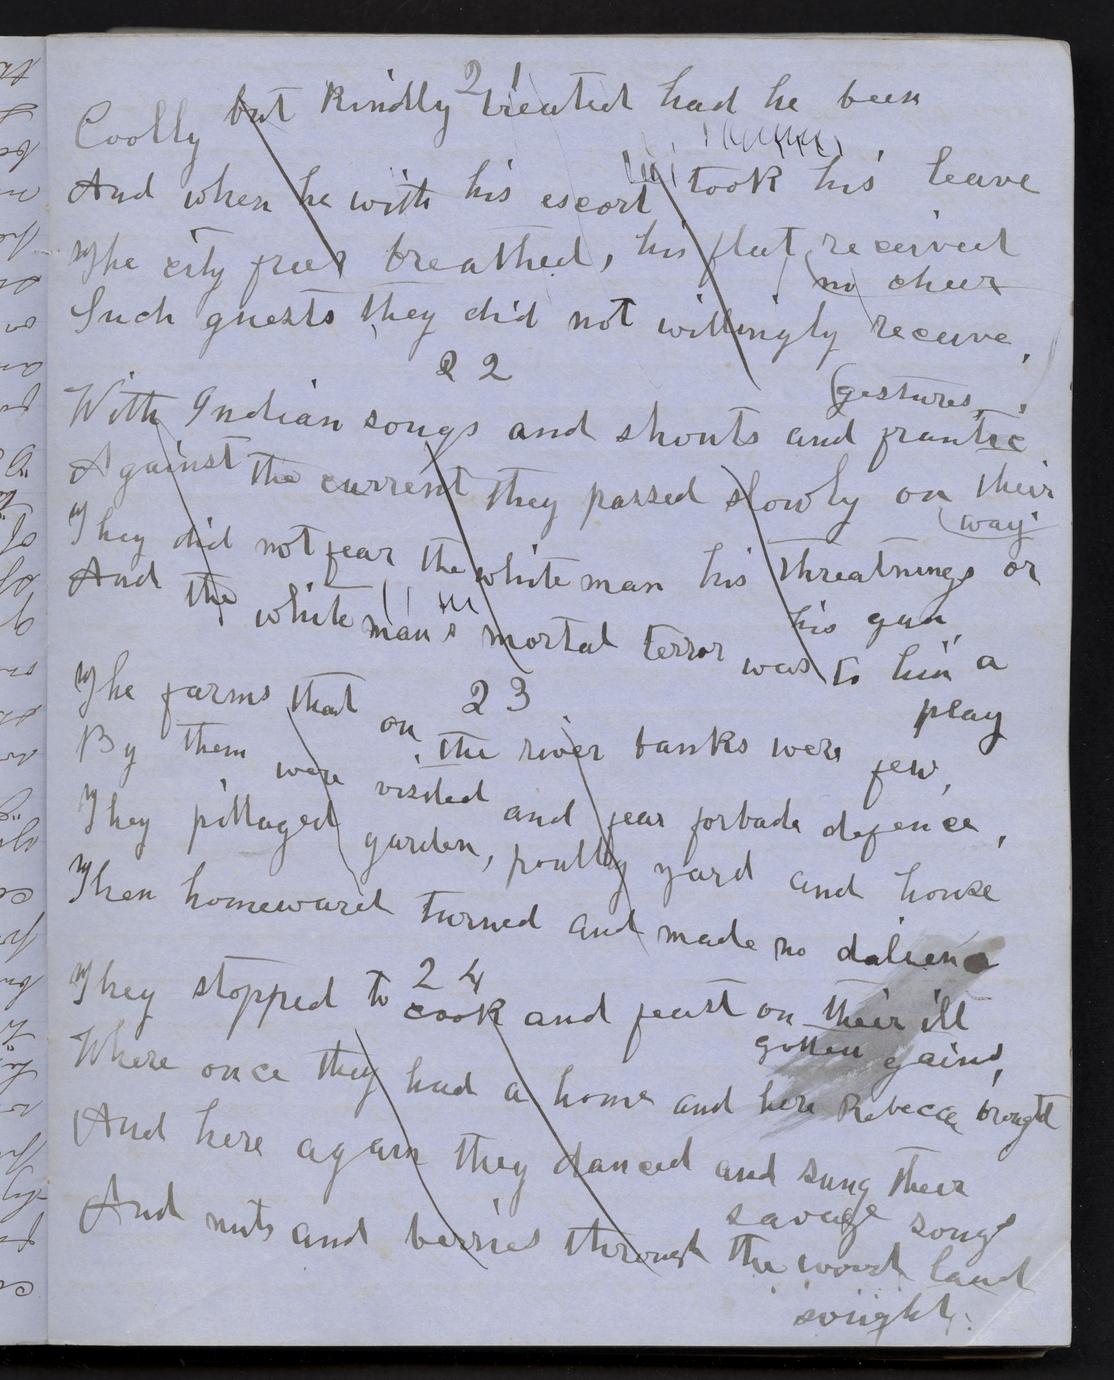 21
Coolly but kindly treated had he been
And when he with his escort took his leave
The city freer breathed, his flat received
no cheer
Such guests they did not willingly receive,
22
With Indian songs and shouts and frantic
gestures,
Against the current they passed slowly on their
way
They did not fear the white man his threatnings or
his gun
And the white man's mortal terror was to him a
play
23
The farms that on the river banks were few,
By them were visited and fear forbade defence,
They pillaged garden, poultry yard and house
Then homeward turned and made no
24
They stopped to cook and feast on their ill
gotten gains,
Where once they had a home and here Rebecca brought
And here again they danced and sung their
savage songs
And nuts and berries through the wood land
sought.